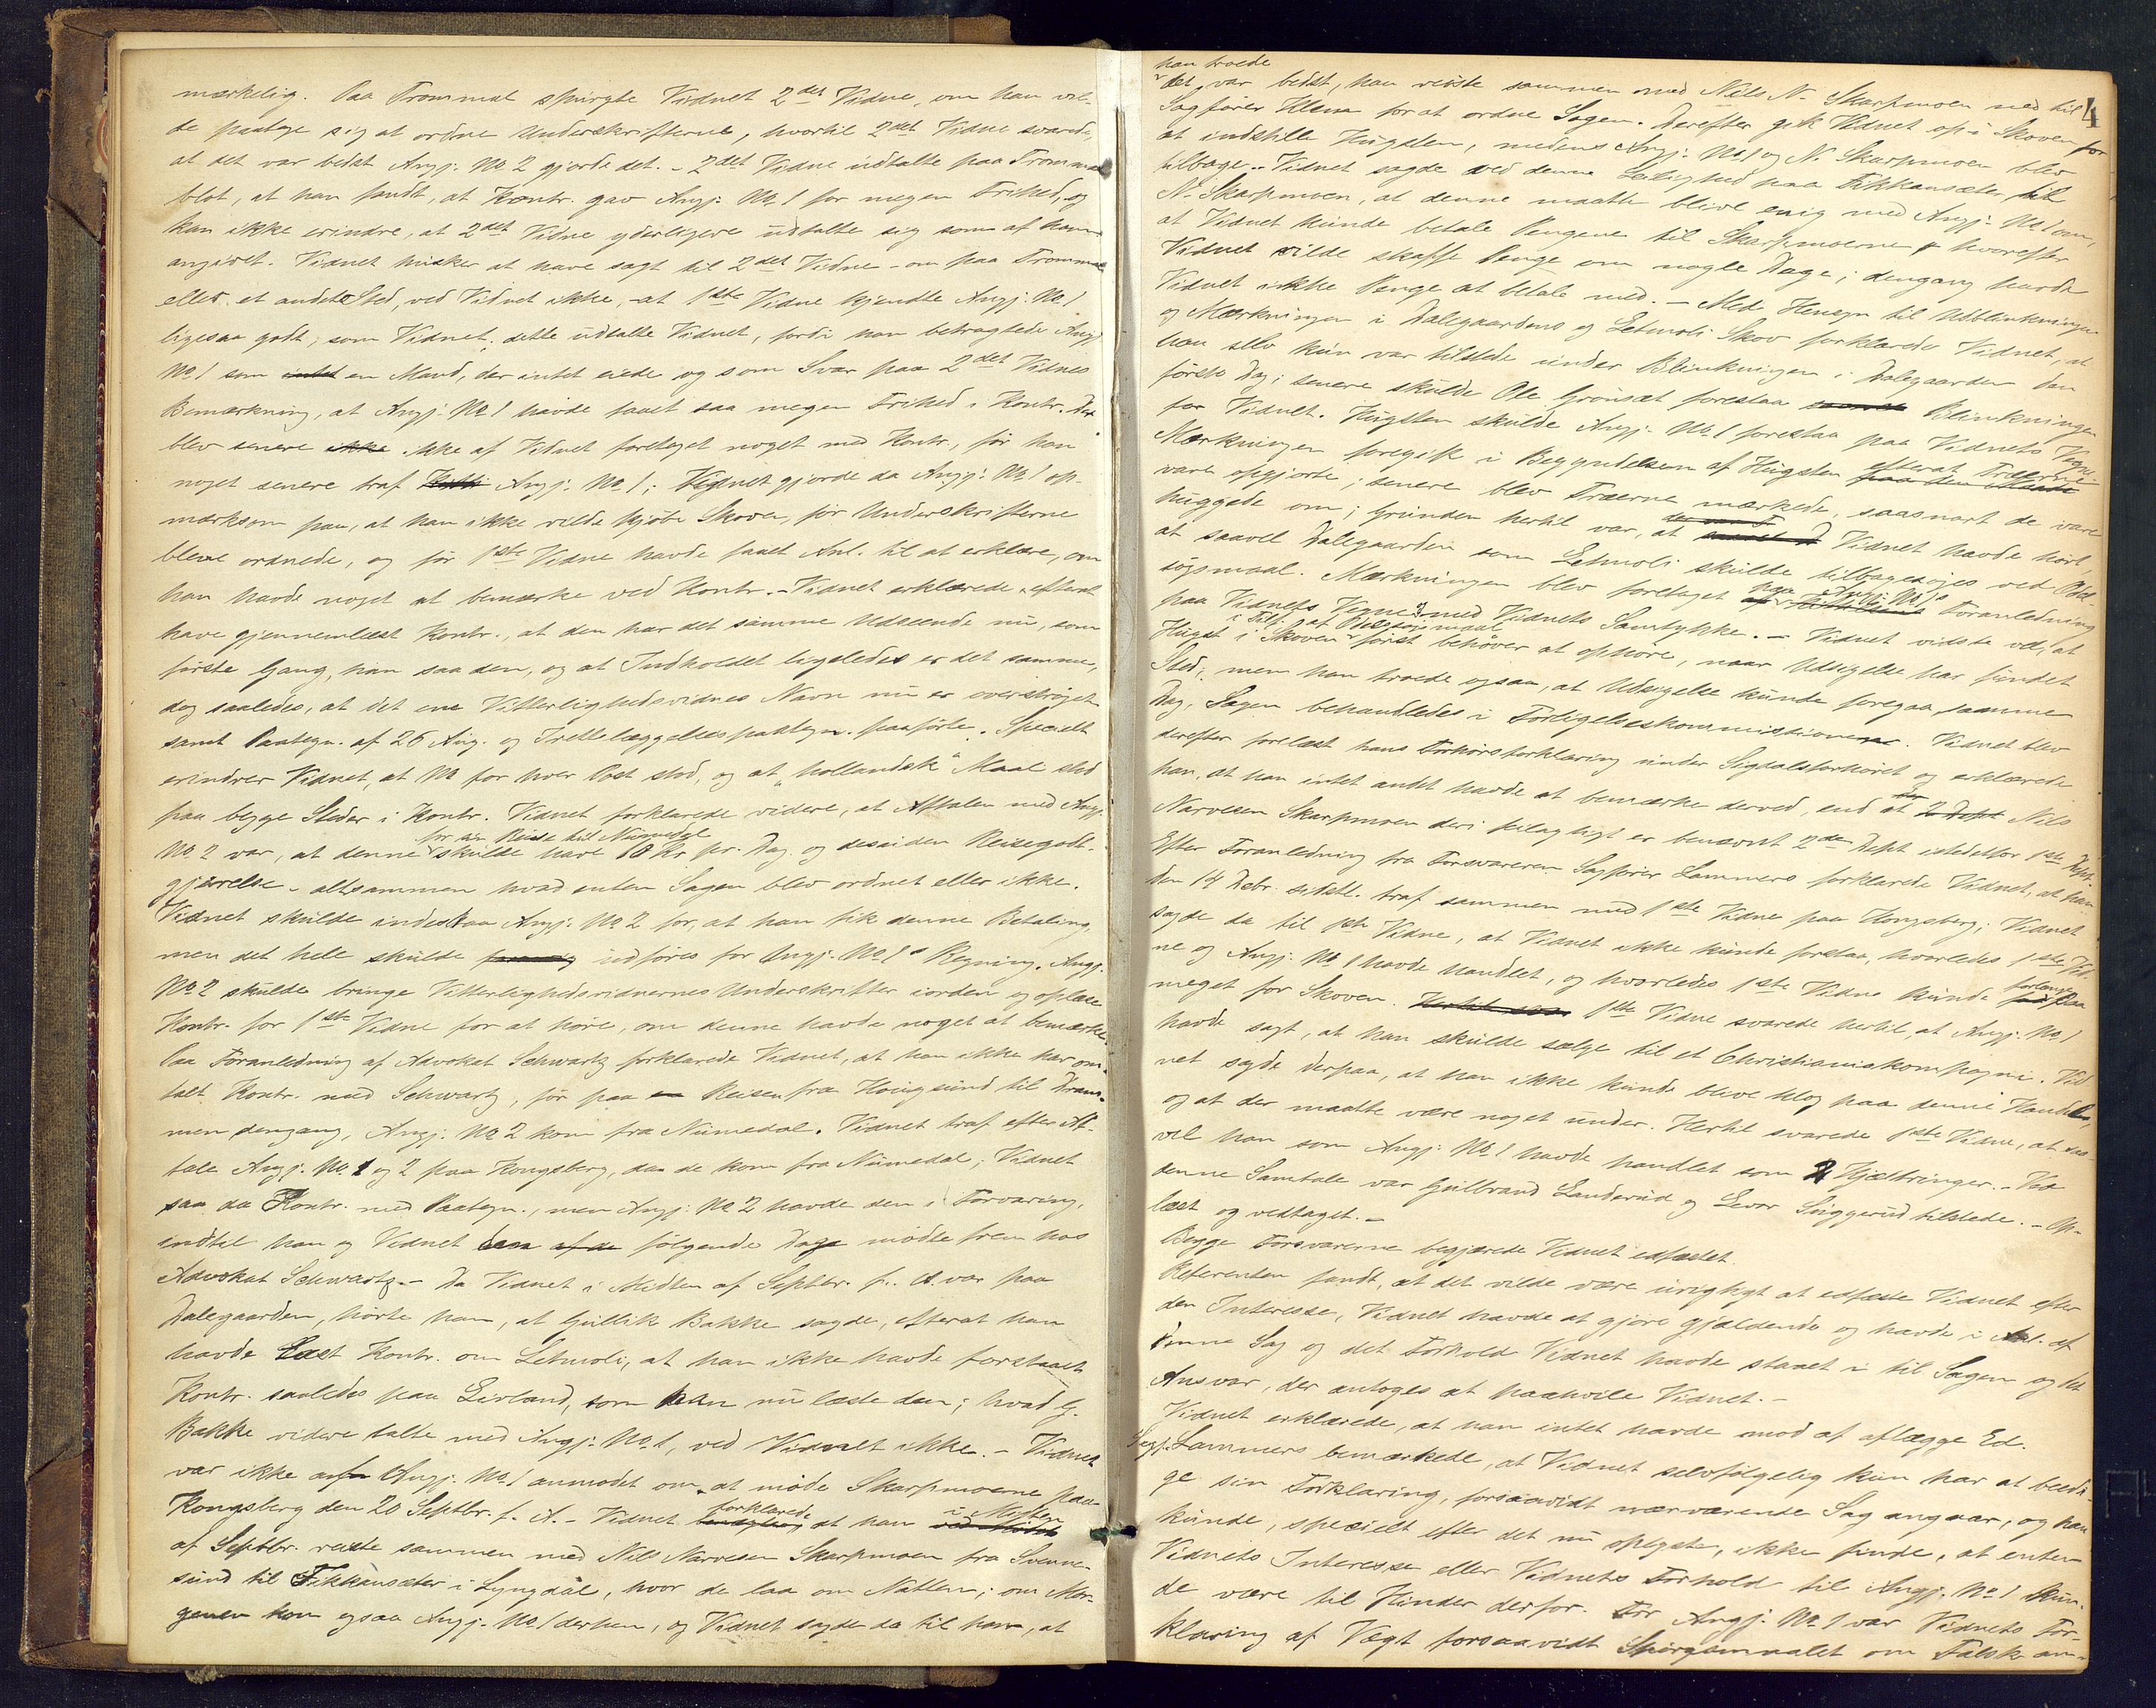 mærkelig. Paa Trommal spurgte Vidnet 2det Vidne, om han vil-
de paatage sig at ordne Underskrifterne, hvortil 2det Vidne svarede,
at det var bedst Angj. No 2 gjorde det. - 2det Vidne udtalte paa Trommal
blot, at han fandt, at Kontr. gav Angj. No 1 for megen Frihed, og
kan ikke erindre, at 2det Vidne yderligere udtalte sig som af ham
angivet. Vidnet husker at have sagt til 2det Vidne - om paa Trommal
eller et andet Sted, ved Vidnet ikke, - at 1ste Vidne kjendte Angj. No 1
ligesaa godt, som Vidnet; dette udtalte Vidnet, fordi han betragtede Angj.
No 1 som intet en Mand, der intet eiede og som Svar paa 2det Vidnes
Bemærkning, at Angj. No 1 havde faaet saa megen Frihed i Kontr. Der
blev senere ikke ikke af Vidnet foretaget noget med Kontr., før han
noget senere traf Angj. No 1; Vidnet gjorde da Angj. No 1 op-
mærksom paa, at han ikke vilde kjøbe Skoven, før Underskrifterne
bleve ordnede, og før 1ste Vidne havde faaet Anl. til at erklære, om
han havde noget at bemærke ved Kontr. - Vidnet erklærede, efterat
have gjennemlæst Kontr., at den har det samme Udseende nu, som
første Gang, han saa den, og at Indholdet ligeledes er det samme,
dog saaledes, at det ene Vitterlighedsvidnes Navn nu er overstrøget
samt Paategn. af 26 Aug. og Irettelæggelsespaategn. paaførte. Specielt
erindrer Vidnet, at No for hver Post stod, og at "hollandsk" Maal stod
paa begge Steder i Kontr. Vidnet forklarede videre, at Aftalen med Angj.
for sin Reise til Numedal
No 2 var, at denne skulde have 10 Kr pr. Dag og desuden Reisegodt-
gjørelse - altsammen hvad enten Sagen blev ordnet eller ikke.
Vidnet skulde indestaa Angj. No 2 for, at han fik denne Betaling,
men det hele skulde udføres for Angj. No 1's Regning. Angj.
No 2 skulde bringe Vitterlighedsvidnernes Underskrifter iorden og oplæse
Kontr. for 1ste Vidne for at høre, om denne havde noget at bemærke.
Paa Foranledning af Advokat Schwartz forklarede Vidnet, at han ikke har om-
talt Kontr. med Schwartz, før paa en Reisen fra Hougsund til Dram-
men dengang, Angj. No 2 kom fra Numedal. Vidnet traf efter Af-
tale Angj. No 1 og 2 paa Kongsberg, da de kom fra Numedal; Vidnet
saa da Kontr. med Paategn., men Angj. No 2 havde den i Forvaring,
indtil han og Vidnet følgende Dage mødte frem hos
Advokat Schwartz. - Da Vidnet i Midten af Septbr. f. A. var paa
Dalegaarden, hørte han, at Gullik Bakke sagde, efterat han
havde læst Kontr. om Letmoli, at han ikke havde forstaaet
Kontr. saaledes paa Lerland, som han nu læste den; hvad G.
Bakke videre talte med Angj. No 1, ved Vidnet ikke. - Vidnet
var ikke af Angj. No 1 anmodet om at møde Skarpmoerne paa
Kongsberg den 20 Septbr. f. A. - Vidnet forklarede at han i Midten
af Septbr. reiste sammen med Nils Narvesen Skarpmoen fra Svenne-
sund til Fikkansæter i Lyngdal, hvor de laa om Natten; om Mor-
genen kom ogsaa Angj. No 1 derhen, og Vidnet sagde da til ham, at
4
han troede
det var bedst, han reiste sammen med Nils N. Skarpmoen ned til
Sagfører Hlem for at ordne Sagen. Derefter gik Vidnet op i Skoven for
at indstille Hugsten, medens Angj. No 1 og N. Skarpmoen blev
tilbage. - Vidnet sagde ved denne Leilighed paa Fikkansæter til
N. Skarpmoen, at denne maatte blive enig med Angj. No 1 om,
at Vidnet kunde betale Pengene til Skarpmoerne, hvorefter
Vidnet vilde skaffe Penge om nogle Dage; dengang havde
Vidnet ikke Penge at betale med. - Med Hensyn til Udblinkningen
og Mærkningen i Dalegaardens og Letmoli Skov forklarede Vidnet, at
han selv kun var tilstede under Blinkningen i Dalegaarden den
første Dag; senere skulde Ole Grønsæt forestaa Blinkningen
for Vidnet. Hugsten skulde Angj. No 1 forestaa paa Vidnets Vegne.
Mærkningen foregik i Begyndelsen af Hugsten efterat Træerne
vare opgjorte; senere blev Træerne mærkede, saasnart de vare
huggede om; Grunden hertil var, at Vidnet havde hørt,
at saavel Dalegaarden som Letmoli skulde tilbagesøges ved Odel-
søgsmaal. Mærkningen blev foretaget paa Angj. No 1s Foranledning
paa Vidnets Vegne & med Vidnets Samtykke. - Vidnet vidste vel, at
i Tilf. af Odelssøgsmaal
Hugst i Skoven først behøver at ophøre, naar Udsigelse har fundet
Sted; men han troede ogsaa, at Udsigelse kunde foregaa samme
Dag, Sagen behandledes i Forligelseskommissionen. Vidnet blev
derefter forelæst hans Forhørsforklaring under Sigdalsforhøret og erklærede
han, at han intet andet havde at bemærke derved, end at Nils
Narvesen Skarpmoen deri feilagtigt er benævnt 2den Dept istedetfor 1ste Dept.
Efter Foranledning fra Forsvareren Sagfører Lammers forklarede Vidnet, at han
den 14 Debr. sidstl. traf sammen med 1ste Vidne paa Kongsberg; Vidnet
sagde da til 1ste Vidne, at Vidnet ikke kunde forstaa, hvorledes 1ste Vid-
ne og Angj. No 1 havde handlet, og hvorledes 1ste Vidne kunde forlange saa
meget for Skoven. 1ste Vidne svarede hertil, at Angj. No 1
havde sagt, at han skulde sælge til et Christianiakompagni. Vid-
net sagde derpaa, at han ikke kunde blive klog paa denne Handel,
og at der maatte være noget under. Hertil svarede 1ste Vidne, at saa-
vel han som Angj. No 1 havde handlet som 2 Kjæltringer. - Ved
denne Samtale var Gulbrand Landerud og Levor Snggerud tilstede. - Op-
læst og vedtaget. -
Begge Forsvarerne begjærede Vidnet edfæstet.
Referenten fandt, at det vilde være urigtigt at edfæste Vidnet efter
den Interesse, Vidnet havde at gjøre gjældende og havde i Anl. af
denne Sag og det Forhold Vidnet havde staaet i til Sagen og det
Ansvar, der antoges at paahvile Vidnet. -
Vidnet erklærede, at han intet havde mod at aflægge Ed.
Sagf. Lammers bemærkede, at Vidnet selvfølgelig kun har at beedi-
ge sin Forklaring, forsaavidt nærværende Sag angaar, og han
kunde, specielt efter det nu oplyste, ikke finde, at enten
Vidnets Interesse eller Vidnets Forhold til Angj. No 1 skun-
de være til Hinder derfor. For Angj. No 1 var Vidnets For-
klaring af Vægt forsaavidt Spørgsmaalet om Falsk an-